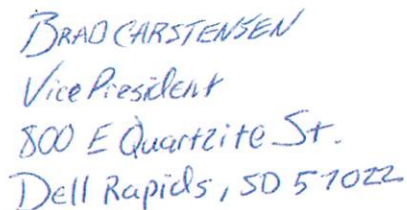 BRAD CARSTENSEN
Vice President
800 E Quartzite St.
Dell Rapids, SD 57022